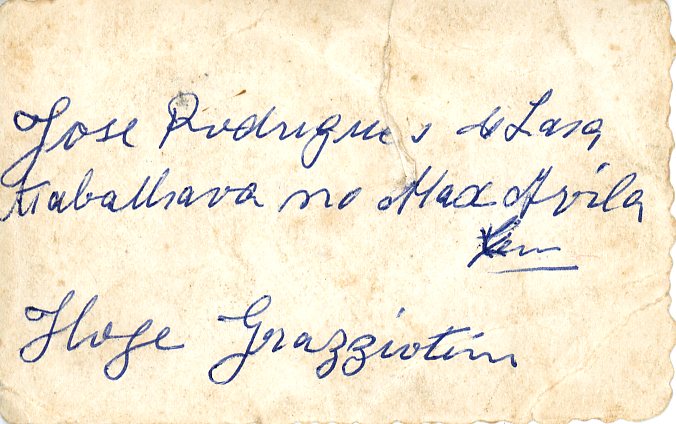 Jose Rodrigues de Lara
trabalhava no Max Avila
Hoje Grazziotin